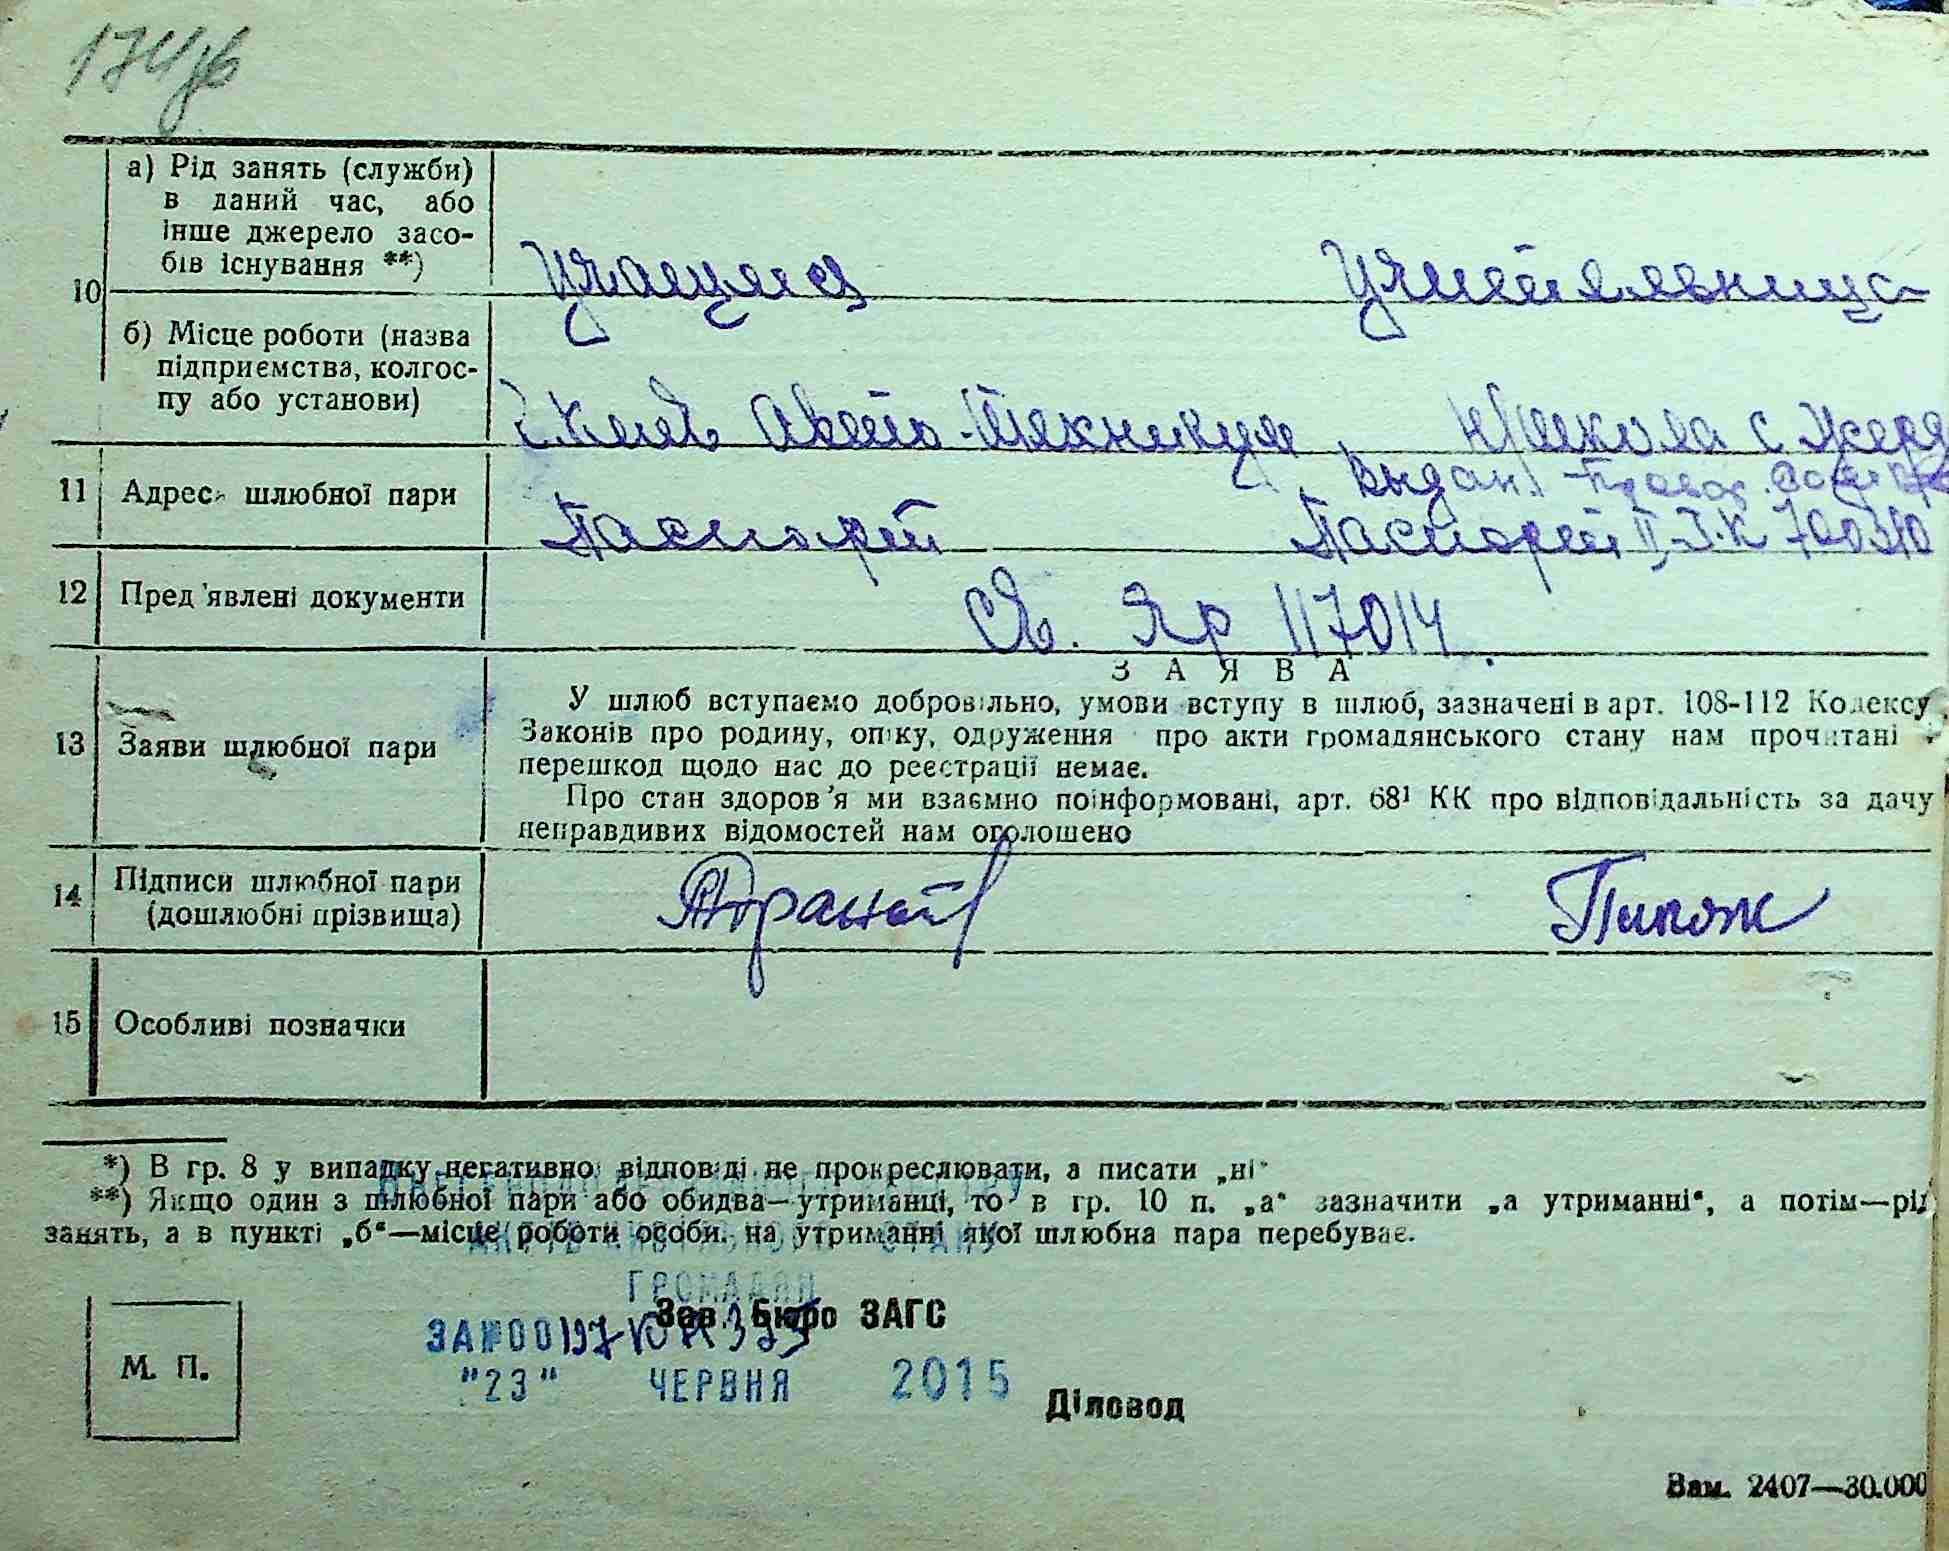 174
а) Рід занять (служби)
в даний час, або
інше джерело засо-
бів існування **)
10
Учащийся
Учительница
б) Місце роботи (назва
підприємства, колгос-
пу або установи)
г. Киев Авто-Техникум
Н/школа с.
11 Адрес шлюбної пари
Выдан.
Паспорт
Паспорт II-ЗК 700310
12 Пред'явлені документи
Яр 117014.
ЗАЯВА
У шлюб вступаємо добровільно, умови вступу в шлюб, зазначені в арт. 108-112 Кодексу
Законів про родину, опіку, одруження про акти громадянського стану нам прочитані
13 Заяви шлюбної пари
перешкод щодо нас до реєстрації немає.
Про стан здоров'я ми взаємно поінформовані, арт. 68¹ КК про відповідальність за дачу
неправдивих відомостей нам оголошено
14 Підписи шлюбної пари
(дошлюбні прізвища)
15 Особливі позначки
*) В гр. 8 у випадку негативної відповіді не прокреслювати, а писати „ні"
**) Якщо один з шлюбної пари або обидва—утриманці, то в гр. 10 п. „а" зазначити „а утриманні", а потім—рід
занять, а в пункті „б"—місце роботи особи, на утриманні якої шлюбна пара перебуває.
ГРОМАДЯН
Зав. Бюро ЗАГС
"23" ЧЕРВНЯ 2015
М. П.
Діловод
Зам. 2407—30.000